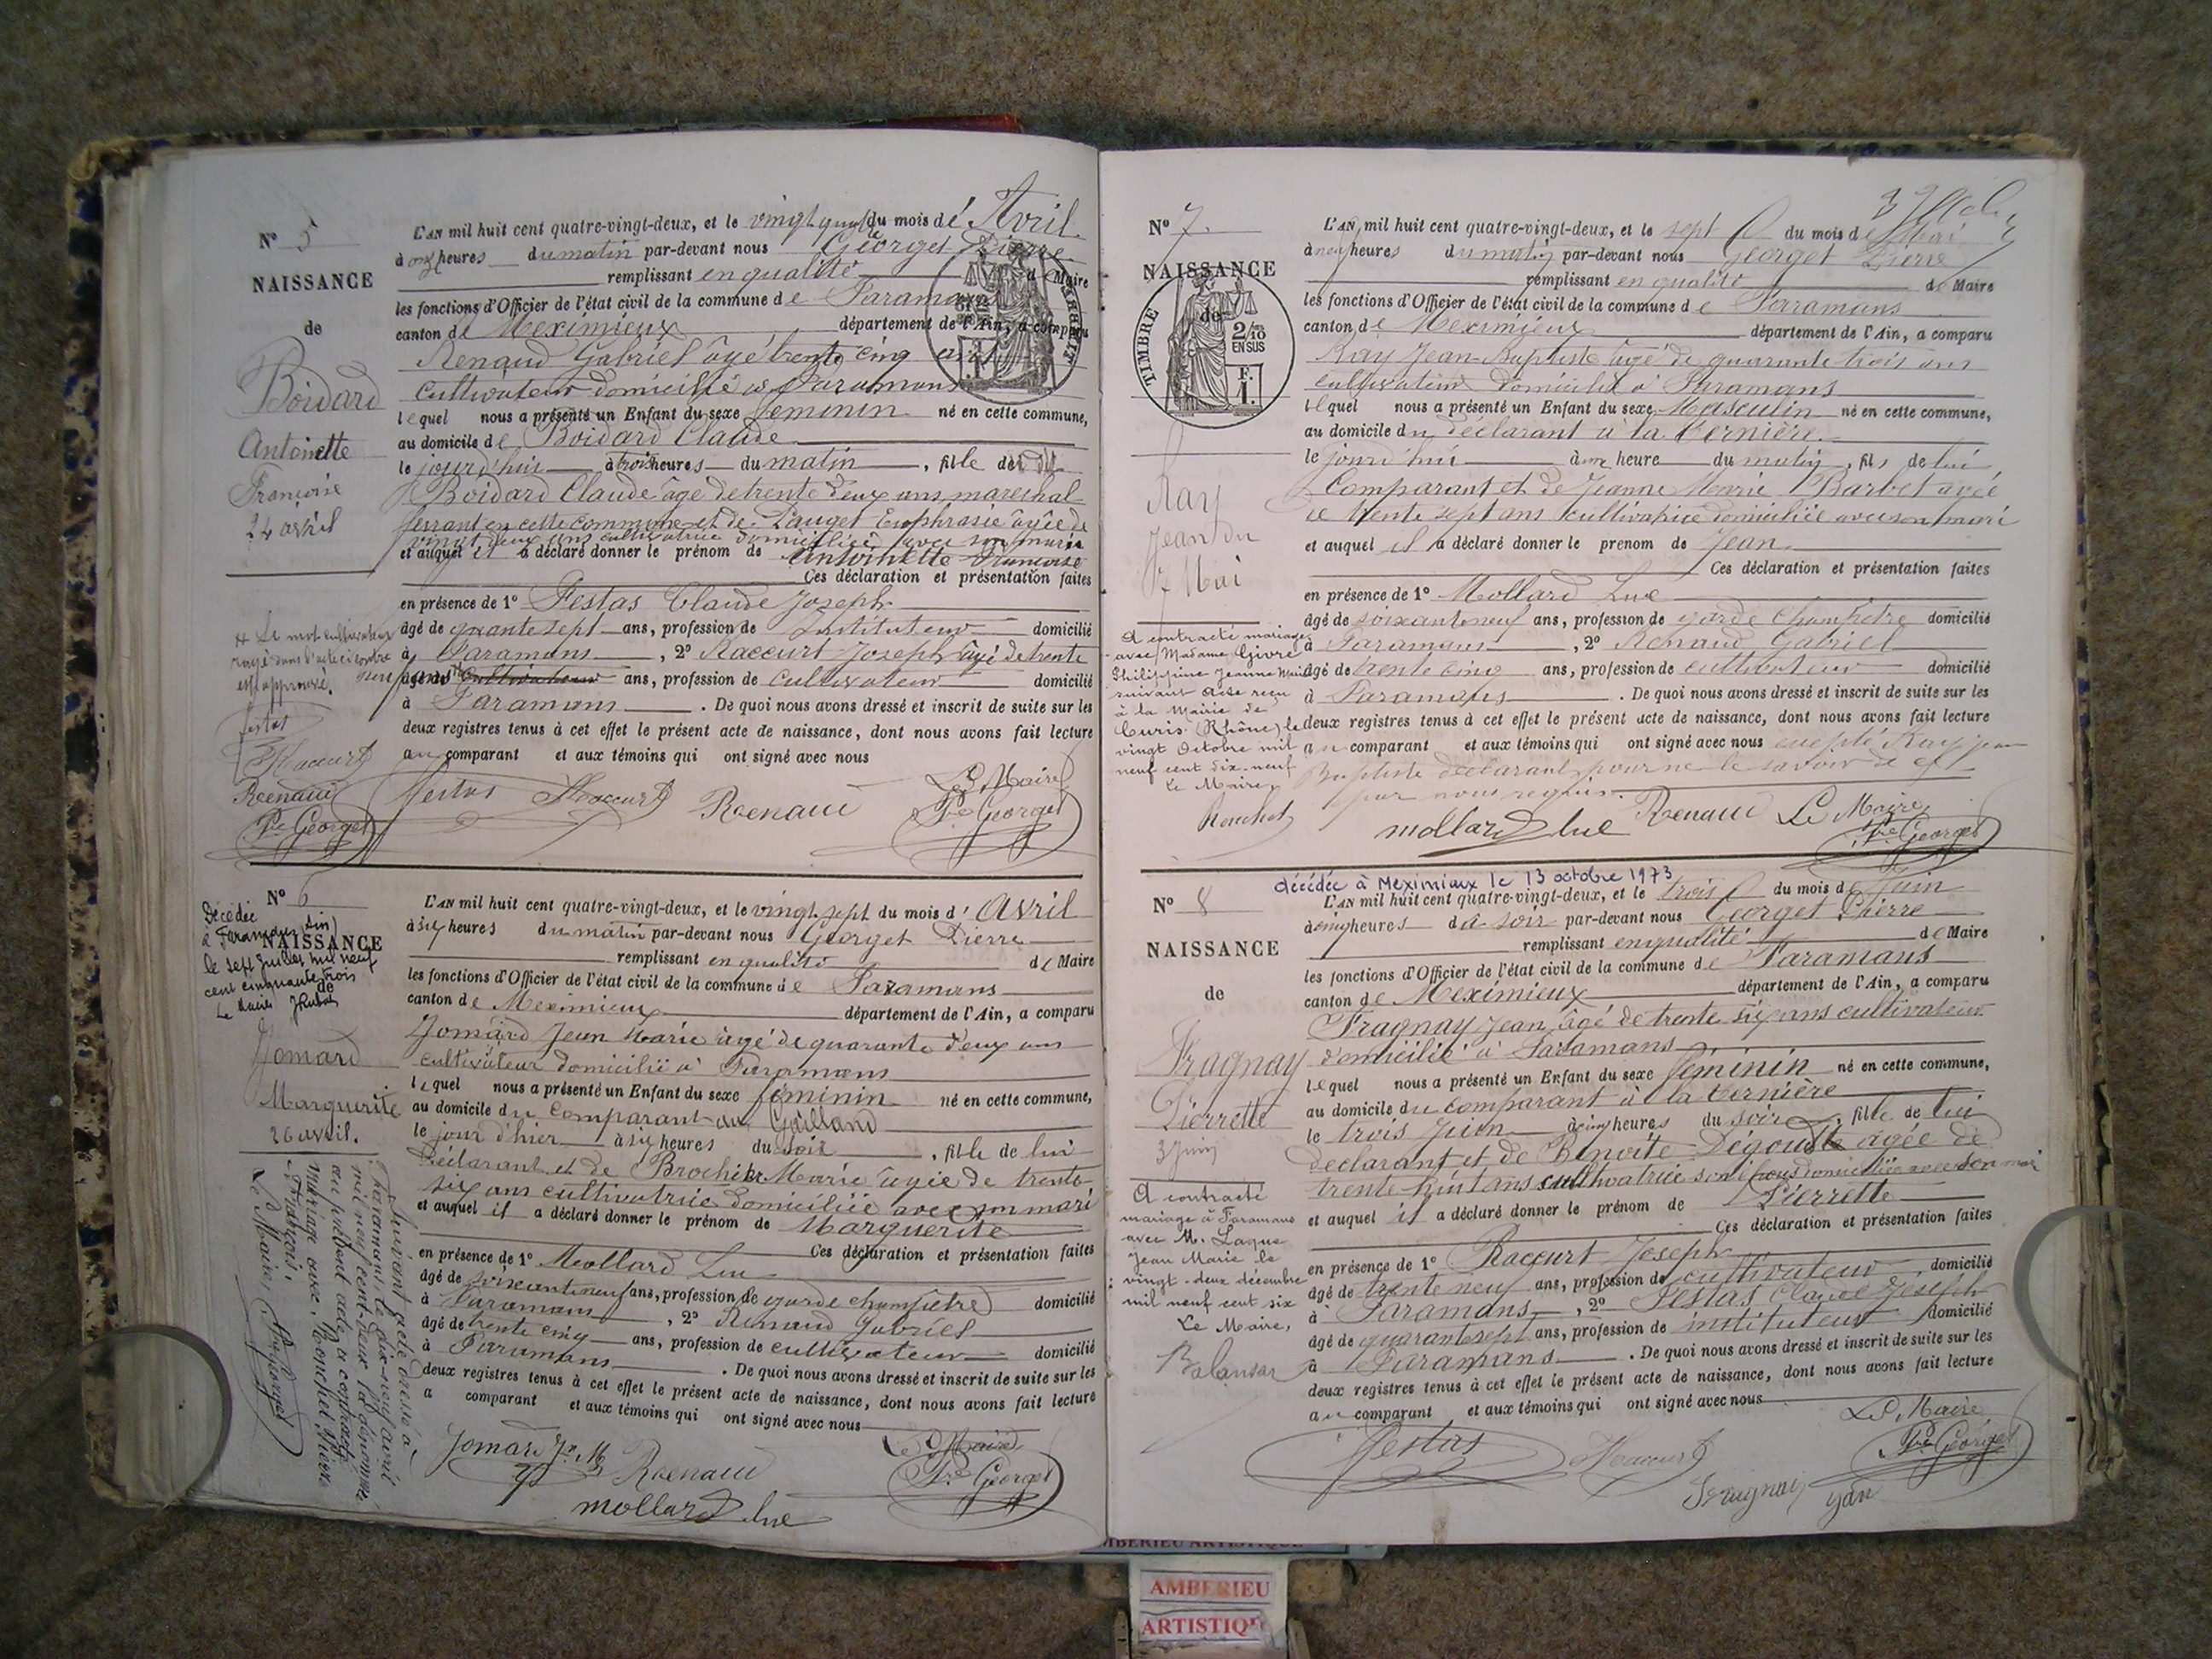 N° 5
NAISSANCE
de
Boidard
Antoinette
Françoise
24 avril
L'AN mil huit cent quatre-vingt-deux, et le vingt quatre du mois d'Avril
à onze heures du matin par-devant nous Georget Pierre
remplissant en qualité de Maire
les fonctions d'Officier de l'état civil de la commune de Faramans
canton de Meximieux département de l'Ain, a comparu
Renaud Gabriel âgé trente cinq ans
cultivateur domicilié à Faramans
lequel nous a présenté un Enfant du sexe feminin né en cette commune,
au domicile de Boidard Claude
le jourd'hui à trois heures du matin, fille de
Boidard Claude âgé de trente deux ans marechal
ferrant en cette commune et de Pauget Euphrasie âgée de
vingt deux ans cultivatrice domiciliée avec son mari
et auquel il a déclaré donner le prénom de Antoinette Françoise
Ces déclaration et présentation faites
en présence de 1° Festas Claude Joseph
âgé de quarante sept ans, profession de Instituteur domicilié
à Faramans, 2° Raccurt Joseph âgé de trente
neuf ans cultivateur ans, profession de cultivateur domicilié
à Faramans. De quoi nous avons dressé et inscrit de suite sur les
deux registres tenus à cet effet le présent acte de naissance, dont nous avons fait lecture
au comparant et aux témoins qui ont signé avec nous
Le mot cultivateur
rayé dans l'acte ci contre
est approuvé.
Festas
Raccurt
Renaud
Pre Georget
Festas Raccurt Renaud
Le Maire
Pre Georget
N° 6
NAISSANCE
de
Décédée
à Faramans (Ain)
le sept Juillet mil neuf
cent cinquante trois
Le Maire
Jomard
Marguerite
26 avril.
Suivant acte dressé à
Faramans le dix-neuf avril
mil neuf cent deux la dénommée
au présent acte a contracté
mariage avec Ronchet Pierre
François.
Le Maire, Pre Georget
L'AN mil huit cent quatre-vingt-deux, et le vingt sept du mois d'Avril
à six heures du matin par-devant nous Georget Pierre
remplissant en qualité de Maire
les fonctions d'Officier de l'état civil de la commune de Faramans
canton de Meximieux département de l'Ain, a comparu
Jomard Jean Marie âgé de quarante deux ans
cultivateur domicilié à Faramans
lequel nous a présenté un Enfant du sexe féminin né en cette commune,
au domicile du comparant au Gailland
le jour d'hier à six heures du soir, fille de lui
déclarant et de Brochier Marie âgée de trente
six ans cultivatrice domiciliée avec son mari
et auquel il a déclaré donner le prénom de Marguerite
Ces déclaration et présentation faites
en présence de 1° Mollard Luc
âgé de soixante neuf ans, profession de garde champêtre domicilié
à Faramans, 2° Renaud Gabriel
âgé de trente cinq ans, profession de cultivateur domicilié
à Faramans. De quoi nous avons dressé et inscrit de suite sur les
deux registres tenus à cet effet le présent acte de naissance, dont nous avons fait lecture
a comparant et aux témoins qui ont signé avec nous
Jomard Jn M Renaud
mollard luc
Le Maire
Pre Georget
N° 7
NAISSANCE
de
TIMBRE
2/10
EN SUS
F.
1.
Ray
Jean du
7 Mai
A contracté mariage
avec Madame Givre
Philippine Jeanne Marie
suivant acte reçu
à la Mairie de
Curis (Rhône) le
vingt Octobre mil
neuf cent dix-neuf
Le Maire,
Ronchet
L'AN mil huit cent quatre-vingt-deux, et le sept du mois de Mai
à neuf heures du matin par-devant nous Georget Pierre
remplissant en qualité de Maire
les fonctions d'Officier de l'état civil de la commune de Faramans
canton de Meximieux département de l'Ain, a comparu
Ray Jean-Baptiste âgé de quarante trois ans
cultivateur domicilié à Faramans
lequel nous a présenté un Enfant du sexe Masculin né en cette commune,
au domicile du déclarant à la Bernière.
le jourd'hui à une heure du matin, fils de lui
Comparant et de Jeanne Marie Barbet agée
de trente sept ans cultivatrice domiciliée avec son mari
et auquel il a déclaré donner le prenom de Jean
Ces déclaration et présentation faites
en présence de 1° Mollard Luc
âgé de soixante neuf ans, profession de garde Champêtre domicilié
à Faramans, 2° Renaud Gabriel
âgé de trente cinq ans, profession de cultivateur domicilié
à Faramans. De quoi nous avons dressé et inscrit de suite sur les
deux registres tenus à cet effet le présent acte de naissance, dont nous avons fait lecture
au comparant et aux témoins qui ont signé avec nous excepté Ray Jean
Baptiste déclarant pour ne le savoir de ce
par nous requis.
mollard luc Renaud Le Maire
Pre Georget
décédée à Meximieux le 13 octobre 1973
N° 8
NAISSANCE
de
Fragnay
Pierrette
3 Juin
A contracté
mariage à Faramans
avec M. Laque
Jean Marie le
vingt-deux décembre
mil neuf cent six
Le Maire,
L'AN mil huit cent quatre-vingt-deux, et le trois du mois de Juin
à cinq heures du soir par-devant nous Georget Pierre
remplissant en qualité de Maire
les fonctions d'Officier de l'état civil de la commune de Faramans
canton de Meximieux département de l'Ain, a comparu
Fragnay Jean âgé de trente six ans cultivateur
domicilié à Faramans
lequel nous a présenté un Enfant du sexe féminin né en cette commune,
au domicile du comparant à la Bernière
le trois Juin à cinq heures du soir, fille de lui
déclarant et de Benoîte Dégoutte agée de
trente huit ans cultivatrice son épouse domiciliée avec son mari
et auquel il a déclaré donner le prénom de Pierrette
Ces déclaration et présentation faites
en présence de 1° Raccurt Joseph
âgé de trente neuf ans, profession de cultivateur domicilié
à Faramans, 2° Festas Claude Joseph
âgé de quarante sept ans, profession de instituteur domicilié
à Faramans. De quoi nous avons dressé et inscrit de suite sur les
deux registres tenus à cet effet le présent acte de naissance, dont nous avons fait lecture
au comparant et aux témoins qui ont signé avec nous
Festas Raccurt
Le Maire
Pre Georget
Fragnay
AMBERIEU ARTISTIQUE
AMBERIEU
ARTISTIQU